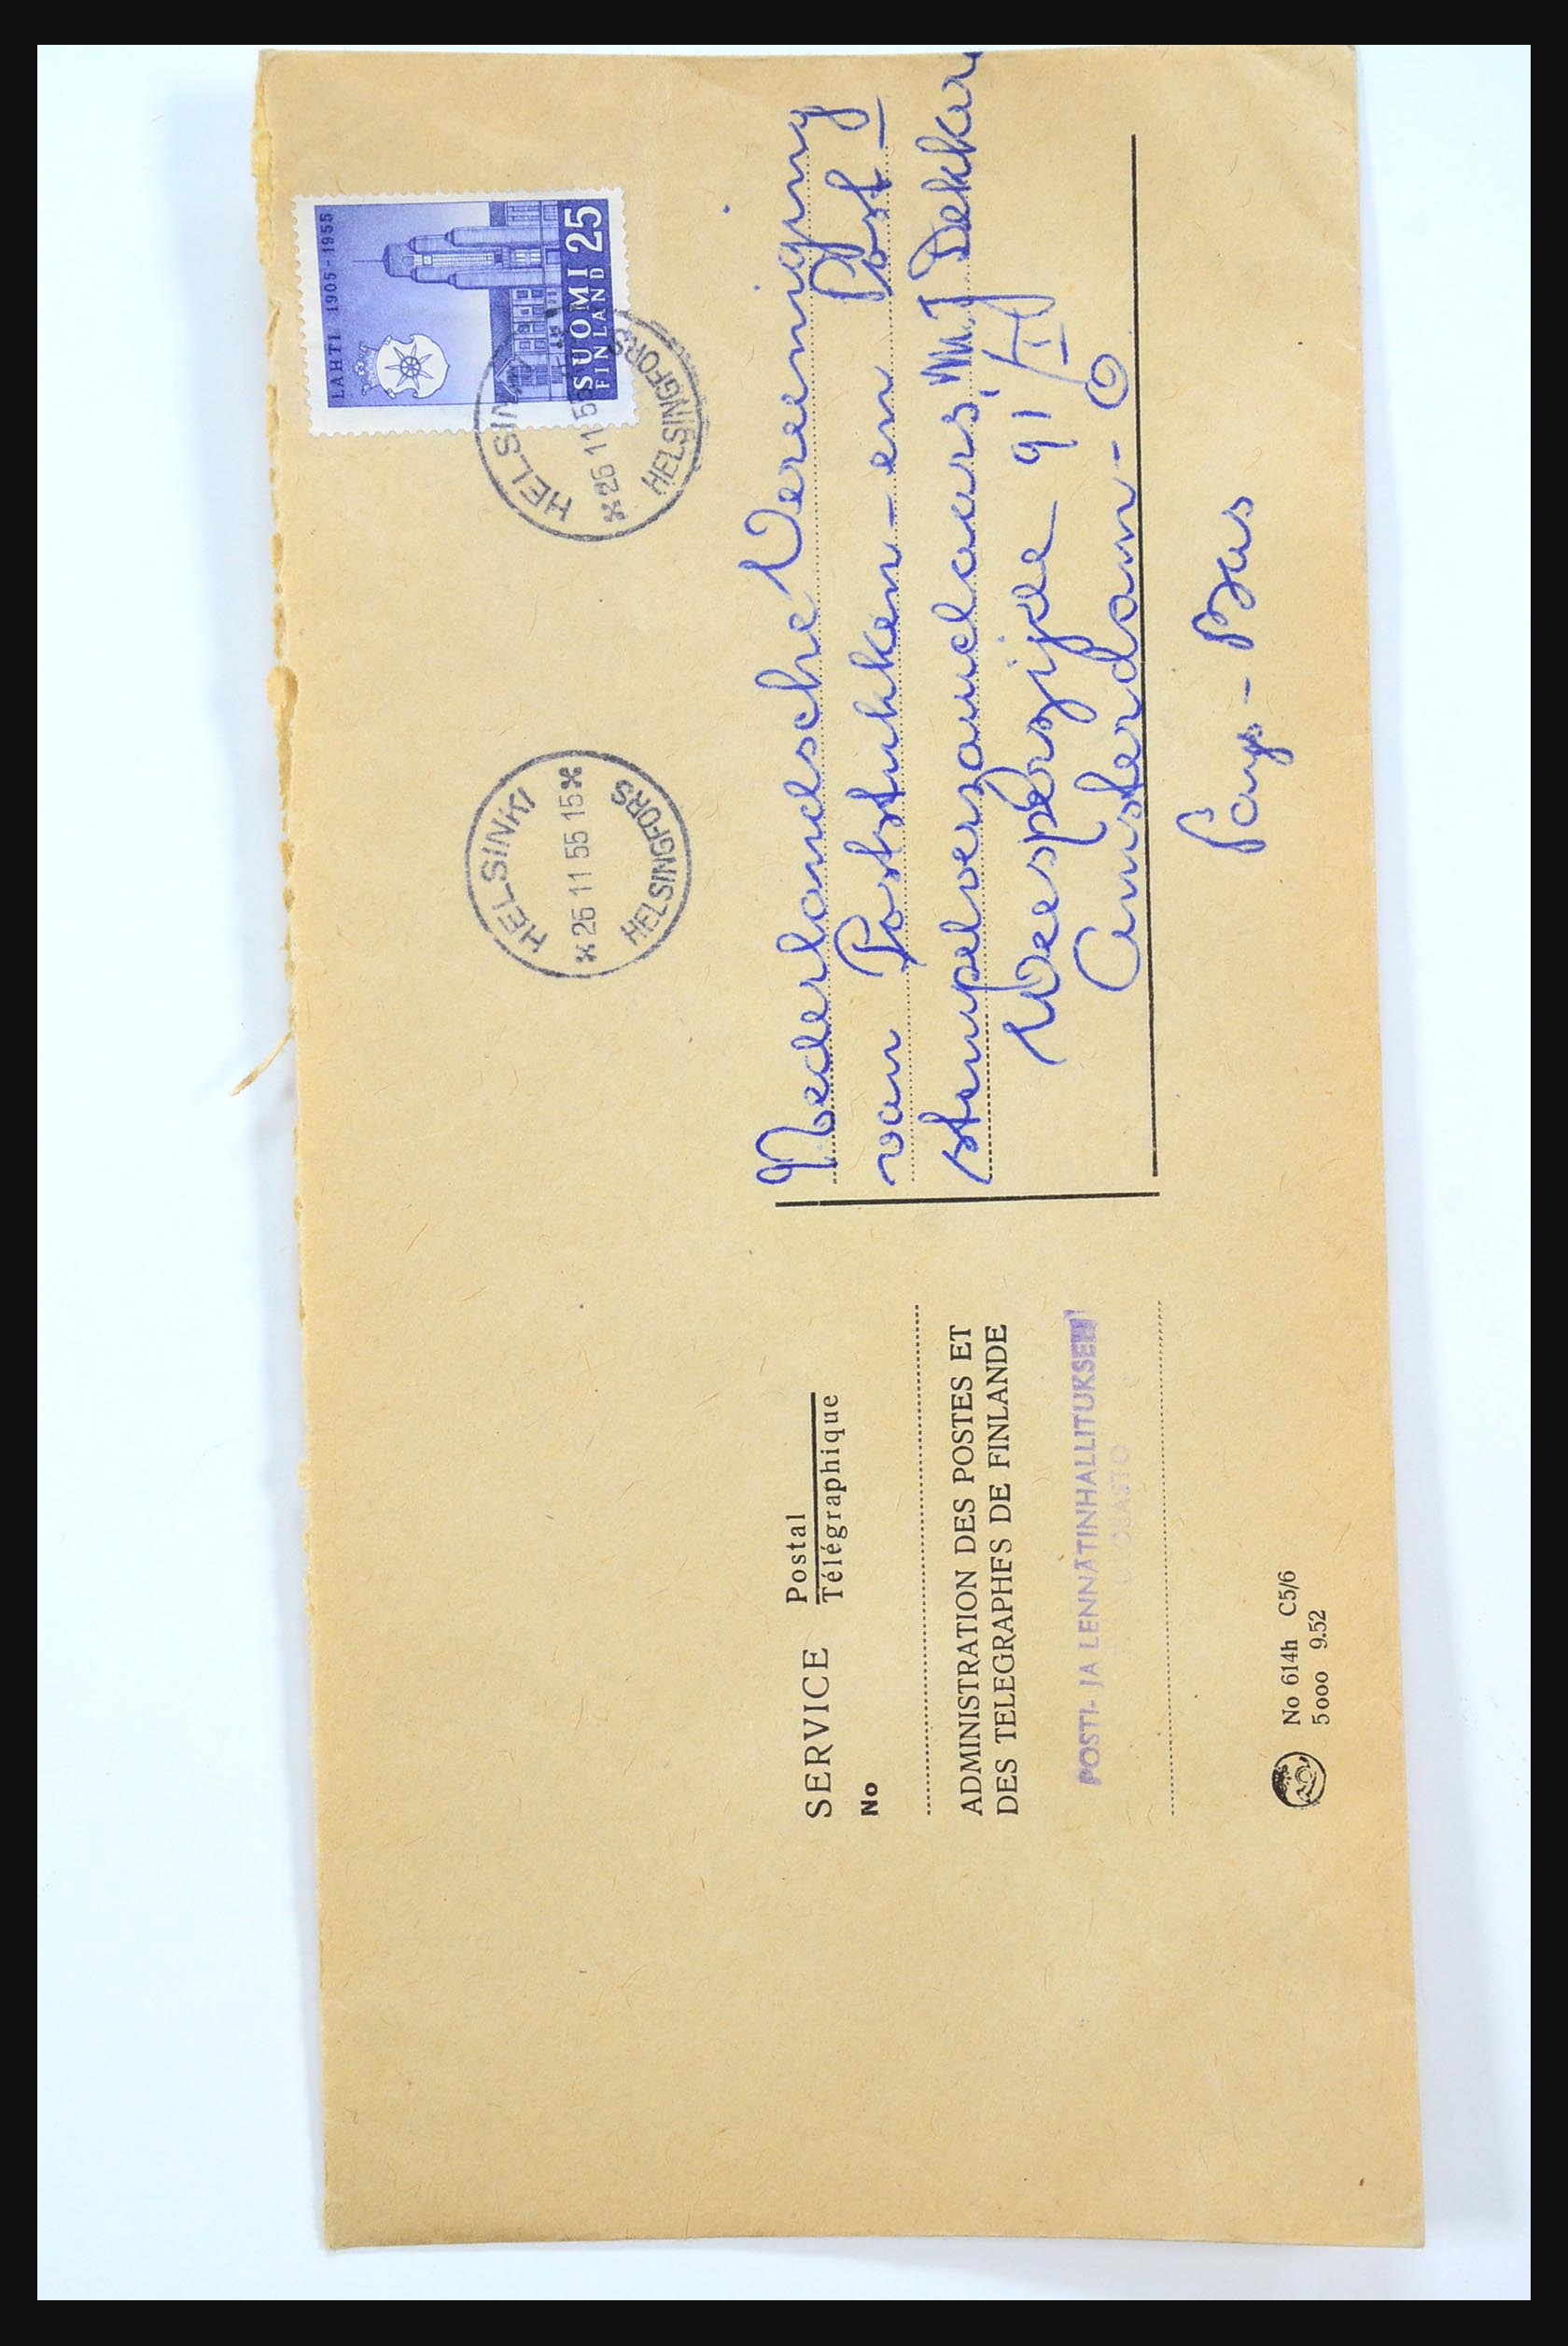 LAHTI 1905-1955
SUOMI 25
FINLAND
HELSINKI
26 11 55 15
HELSINGFORS
26 11 5
HELSINGFORS
Nederlandsche Vereeniging
van Poststukken-en Post
stempelverzamelaars, M.J. Dekker
Weesperzijde 91 II
Amsterdam - O
Pays-Bas
SERVICE Postal
Télégraphique
No
ADMINISTRATION DES POSTES ET
DES TELEGRAPHES DE FINLANDE
POSTI- JA LENNÄTINHALLITUKSEN
OSASTO
No 614h C5/6
5 000 9.52